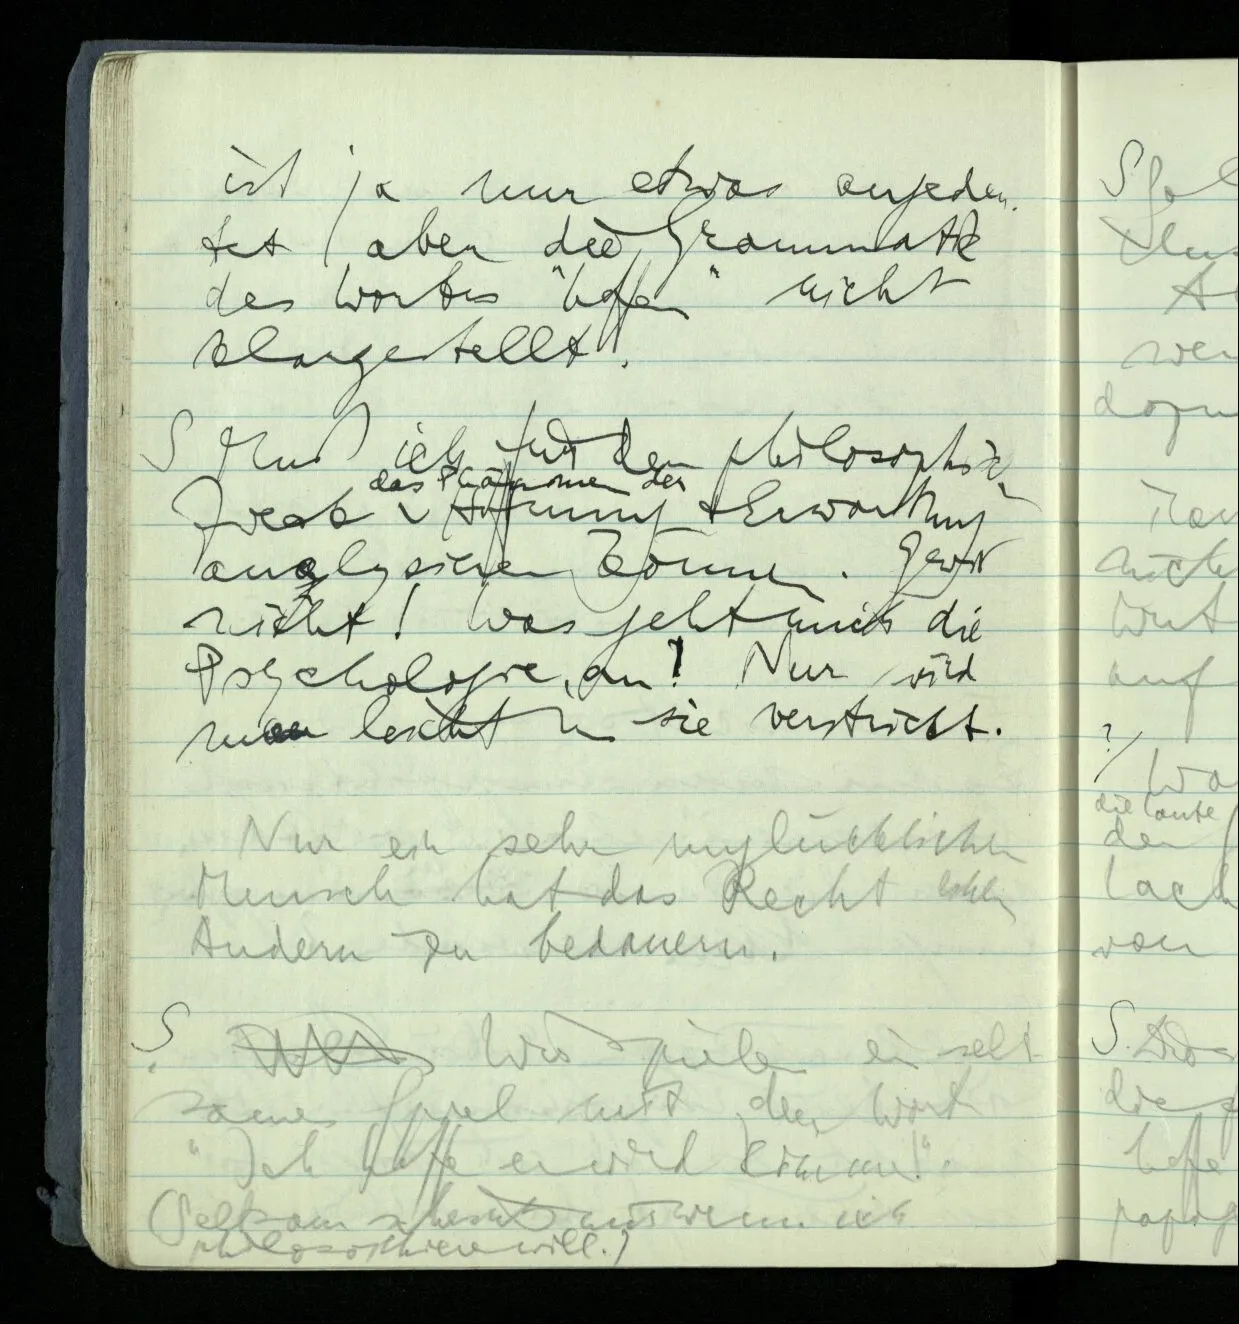 ist ja nur etwas angedeu-
tet, aber die Grammatik
des Wortes "hoffen" nicht
klargestellt.
S Muß ich für den philosophisch.
das Phänomen der
Zweck Hoffnung + Erwartung
analysieren können. Gewiß
nicht! Was geht mich die
Psychologie an! Nur wird
man leicht in sie verstrickt.
Nur ein sehr unglücklicher
Mensch hat das Recht einen
Andern zu bedauern.
S. Wir spielen ein selt
sames Spiel mit den Wort
"Ich hoffe er wird kommen!".
(Seltsam scheint mir's wenn ich
philosophieren will.)
S
?/
die laute
der
lach
von
S. Das
die
hoffe
auf